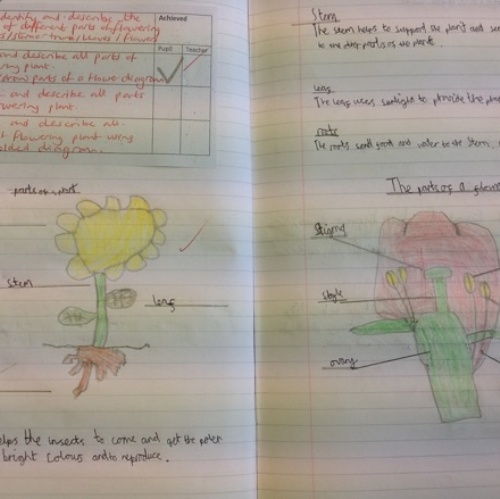 identify and describe the
of different parts of flowering
Achieved
Pupil
Teacher
and describe all parts of
plant.
parts of a
diagram
and describe all parts
wering plant.
and describe all
flowering plant using
diagram.
parts of a plant
stem
leaf
elps the insects to come and get the polen
bright colours and to reproduce.
Stem
The stem helps to support the plant and
to the other parts of the plant.
leaf
The leaf uses sunlight to provide the
roots
The roots send food and water to the stem.
The parts of a
Stigma
style
ovary